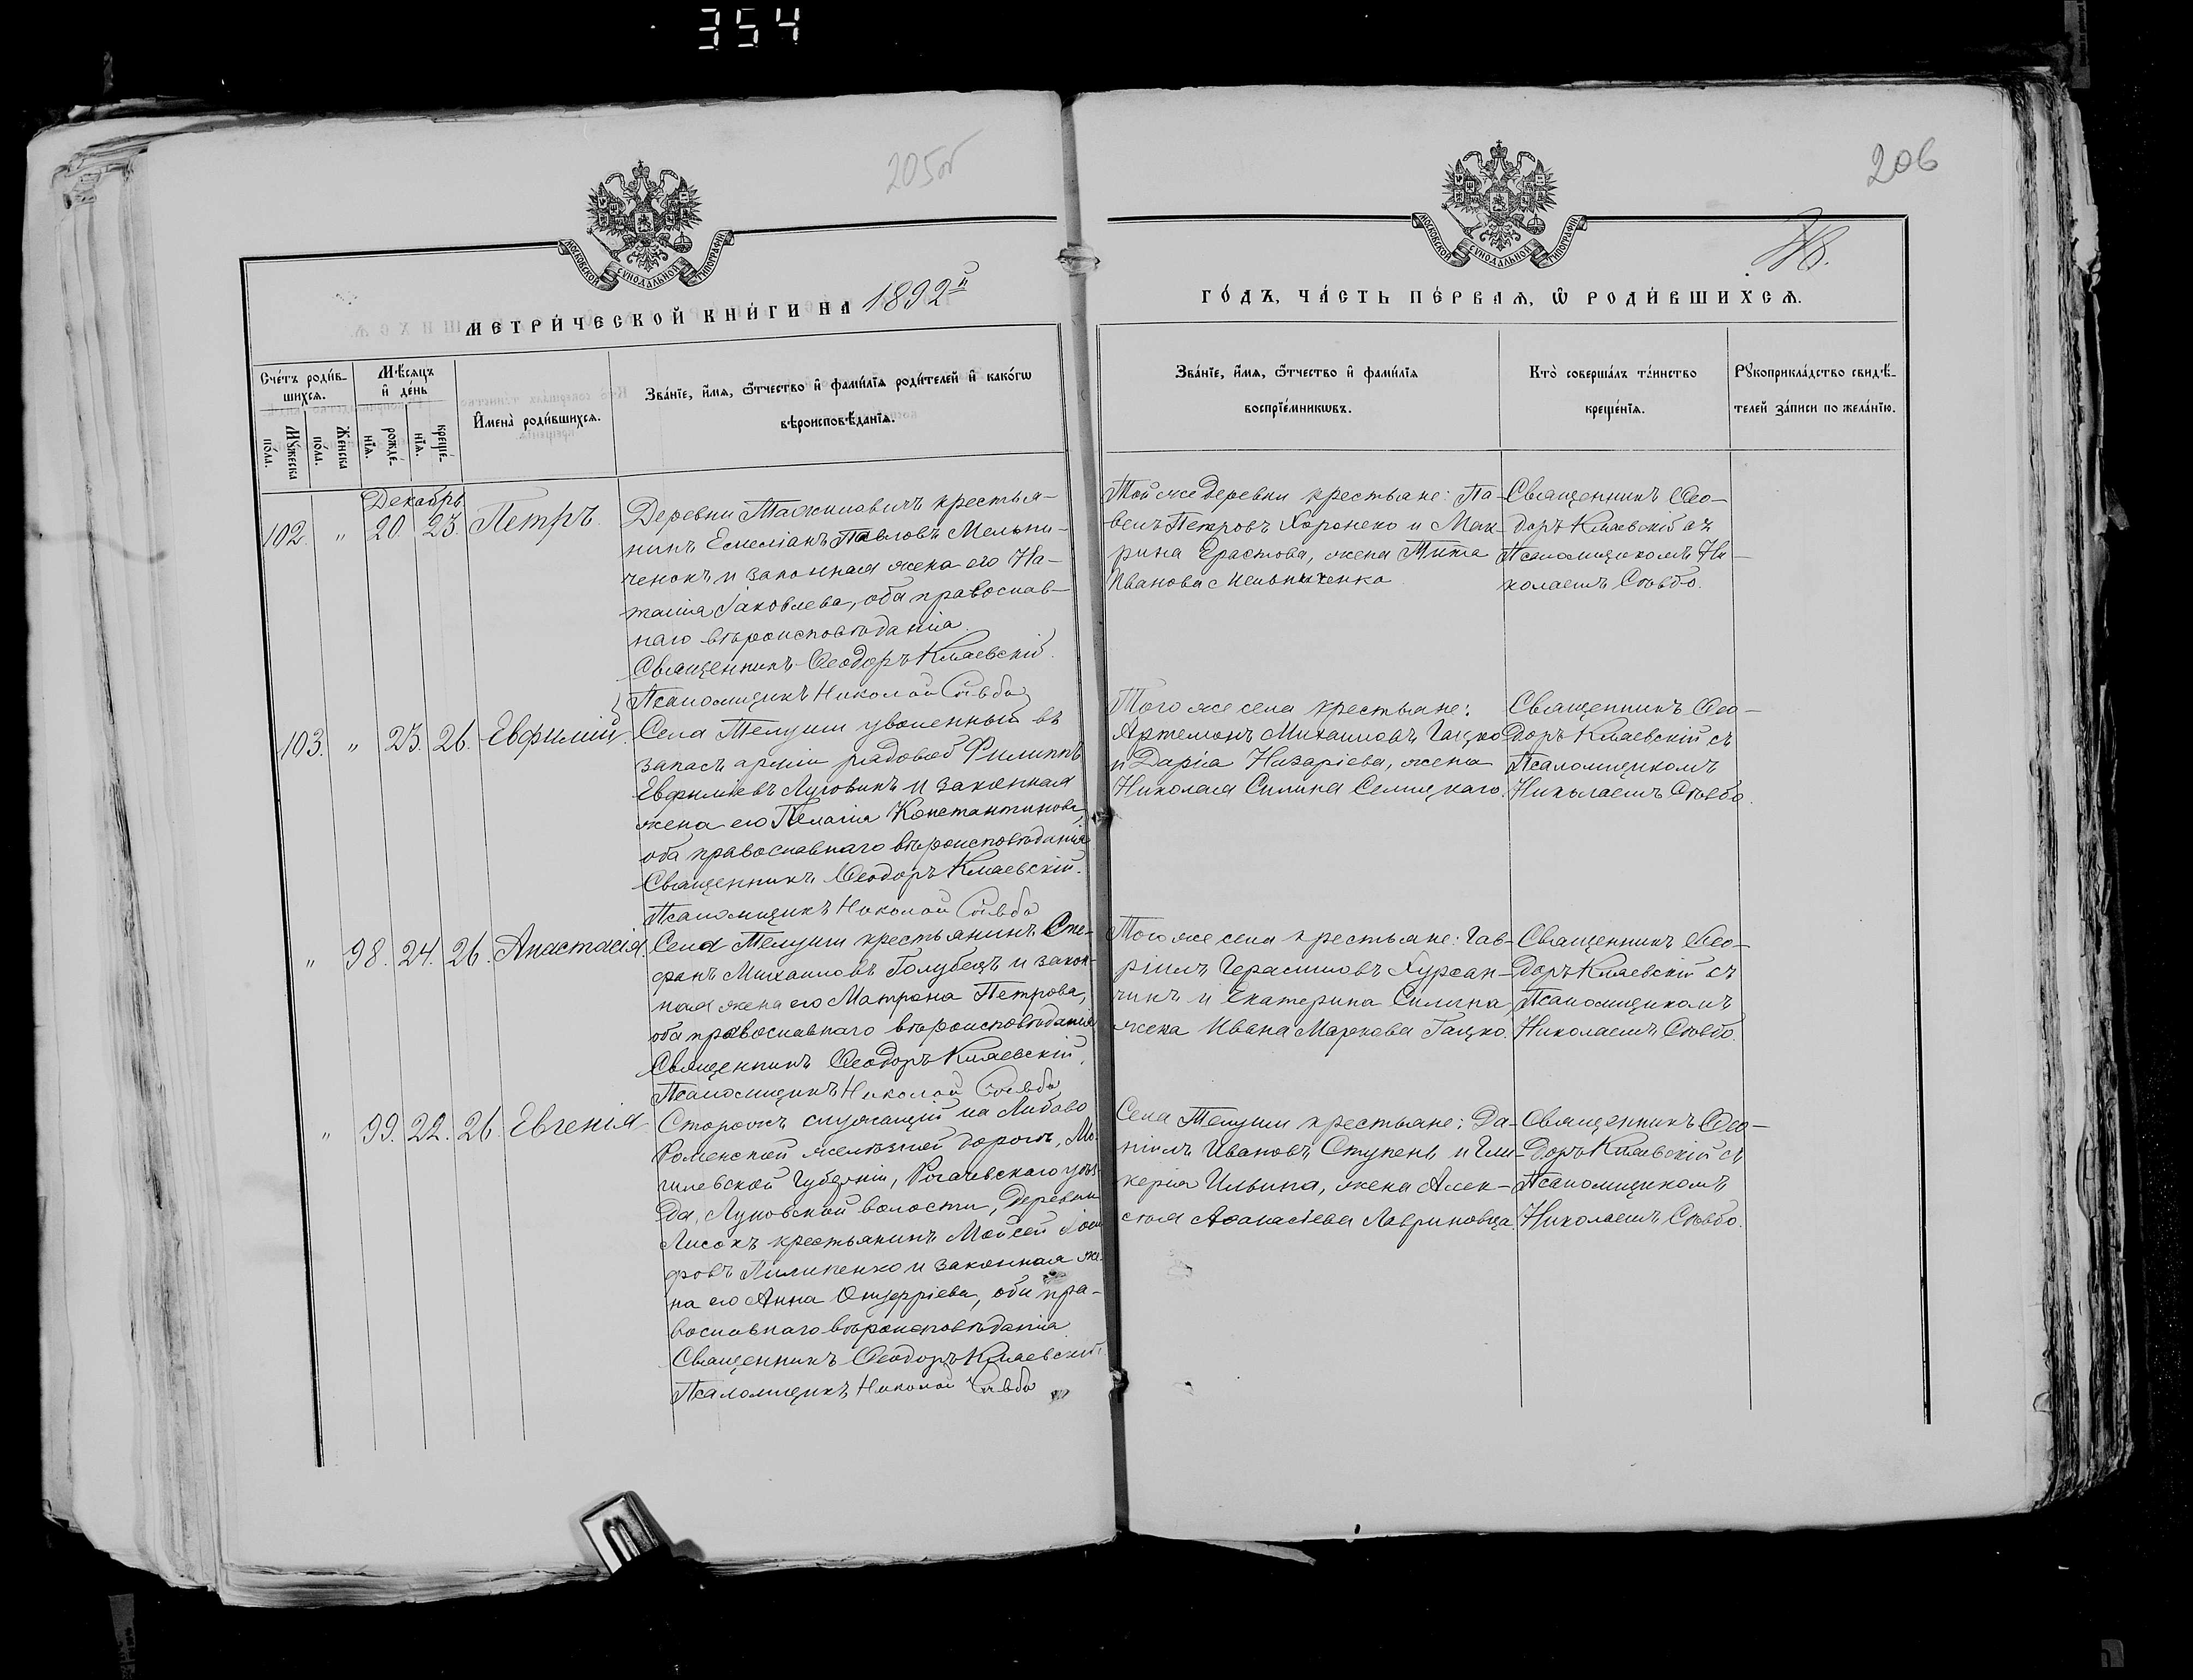 354
205об
206
МОСКОВСКОЙ СѴНОДАЛЬНОЙ ТИПОГРАФІИ
МЕТРИ́ЧЕСКОЙ КНИ́ГИ НА 1892й
Сче́тъ роди́в-
шихсѧ.
Мꙋ́жеска
по́ла.
Же́нска
по́ла.
Мѣ́сѧцъ
и҆ де́нь
рожде́-
нїѧ.
креще́-
нїѧ.
И҆мена̀ роди́вшихсѧ.
Зва́нїе, и҆́мѧ, ѻ҆́тчество и҆ фами́лїѧ роди́телей и҆ како́гѡ
вѣроисповѣ́данїѧ.
Декабрь
102. " 20. 23. Петръ.
Деревни крестья-
нинъ Емеліанъ Павловъ Мельни-
ченокъ и законная жена его На-
талія Іаковлева, оба православ-
наго вѣроисповѣданія.
Священникъ Ѳеодоръ Кмаевскій.
Псаломщикъ Николай
103. " 23. 26. Евфимій.
Села Телуши уволенный въ
запасъ арміи рядовой Филиппъ
Евфиміевъ Луговикъ и законная
жена его Пелагія Константинова,
оба православнаго вѣроисповѣданія
Священникъ Ѳеодоръ Кмаевскій.
Псаломщикъ Николай
" 98. 24. 26. Анастасія.
Села Телуши крестьянинъ Сте-
фанъ Михаиловъ Голубецъ и закон-
ная жена его Матрона Петрова,
оба православнаго вѣроисповѣданія
Священникъ Ѳеодоръ Кмаевскій.
Псаломщикъ Николай
" 99. 22. 26. Евгенія
Сторожъ служащій на Либаво
Роменской желѣзной дорогѣ, Мо-
гилевской Губерніи, Рогачевскаго уѣз-
да, Луковской волости, деревни
Лисокъ крестьянинъ Мойсей
фовъ Пилипенко и законная же-
на его Анна Онуфріева, оба пра-
вославнаго вѣроисповѣданія
Священникъ Ѳеодоръ Кмаевскій.
Псаломщикъ Николай
МОСКОВСКОЙ СѴНОДАЛЬНОЙ ТИПОГРАФІИ
ГО́ДЪ, ЧА́СТЬ ПЕ́РВАѦ, Ѡ҆ РОДИ́ВШИХСѦ.
Зва́нїе, и҆́мѧ, ѻ҆́тчество и҆ фами́лїѧ
воспрїе́мникѡвъ.
Кто̀ соверша́лъ та́инство
креще́нїѧ.
Рꙋкоприкла́дство свидѣ́-
телей за́писи по жела́нїю.
Той же деревни крестьяне: Па-
велъ Петровъ Хоронеко и Мак-
рина Ерастова, жена Тита
Иванова Мельниченка.
Священникъ Ѳео-
доръ Кмаевскій съ
Псаломщикомъ Ни-
колаемъ
Того же села крестьяне:
Артемонъ Михаиловъ Гацко
и Дарія Назаріева, жена
Николая Силина Семицкаго.
Священникъ Ѳео-
доръ Кмаевскій съ
Псаломщикомъ
Николаемъ
Того же села крестьяне: Гав-
ріилъ Герасимовъ Хурсан-
чикъ и Екатерина Силична,
жена Ивана Маркова Гацко.
Священникъ Ѳео-
доръ Кмаевскій съ
Псаломщикомъ
Николаемъ
Села Телуши крестьяне: Да-
ніилъ Ивановъ Ступень и Гли-
керія Ильина, жена Алек-
сѣя Аѳанасіева Лавриновца.
Священникъ Ѳео-
доръ Кмаевскій съ
Псаломщикомъ
Николаемъ